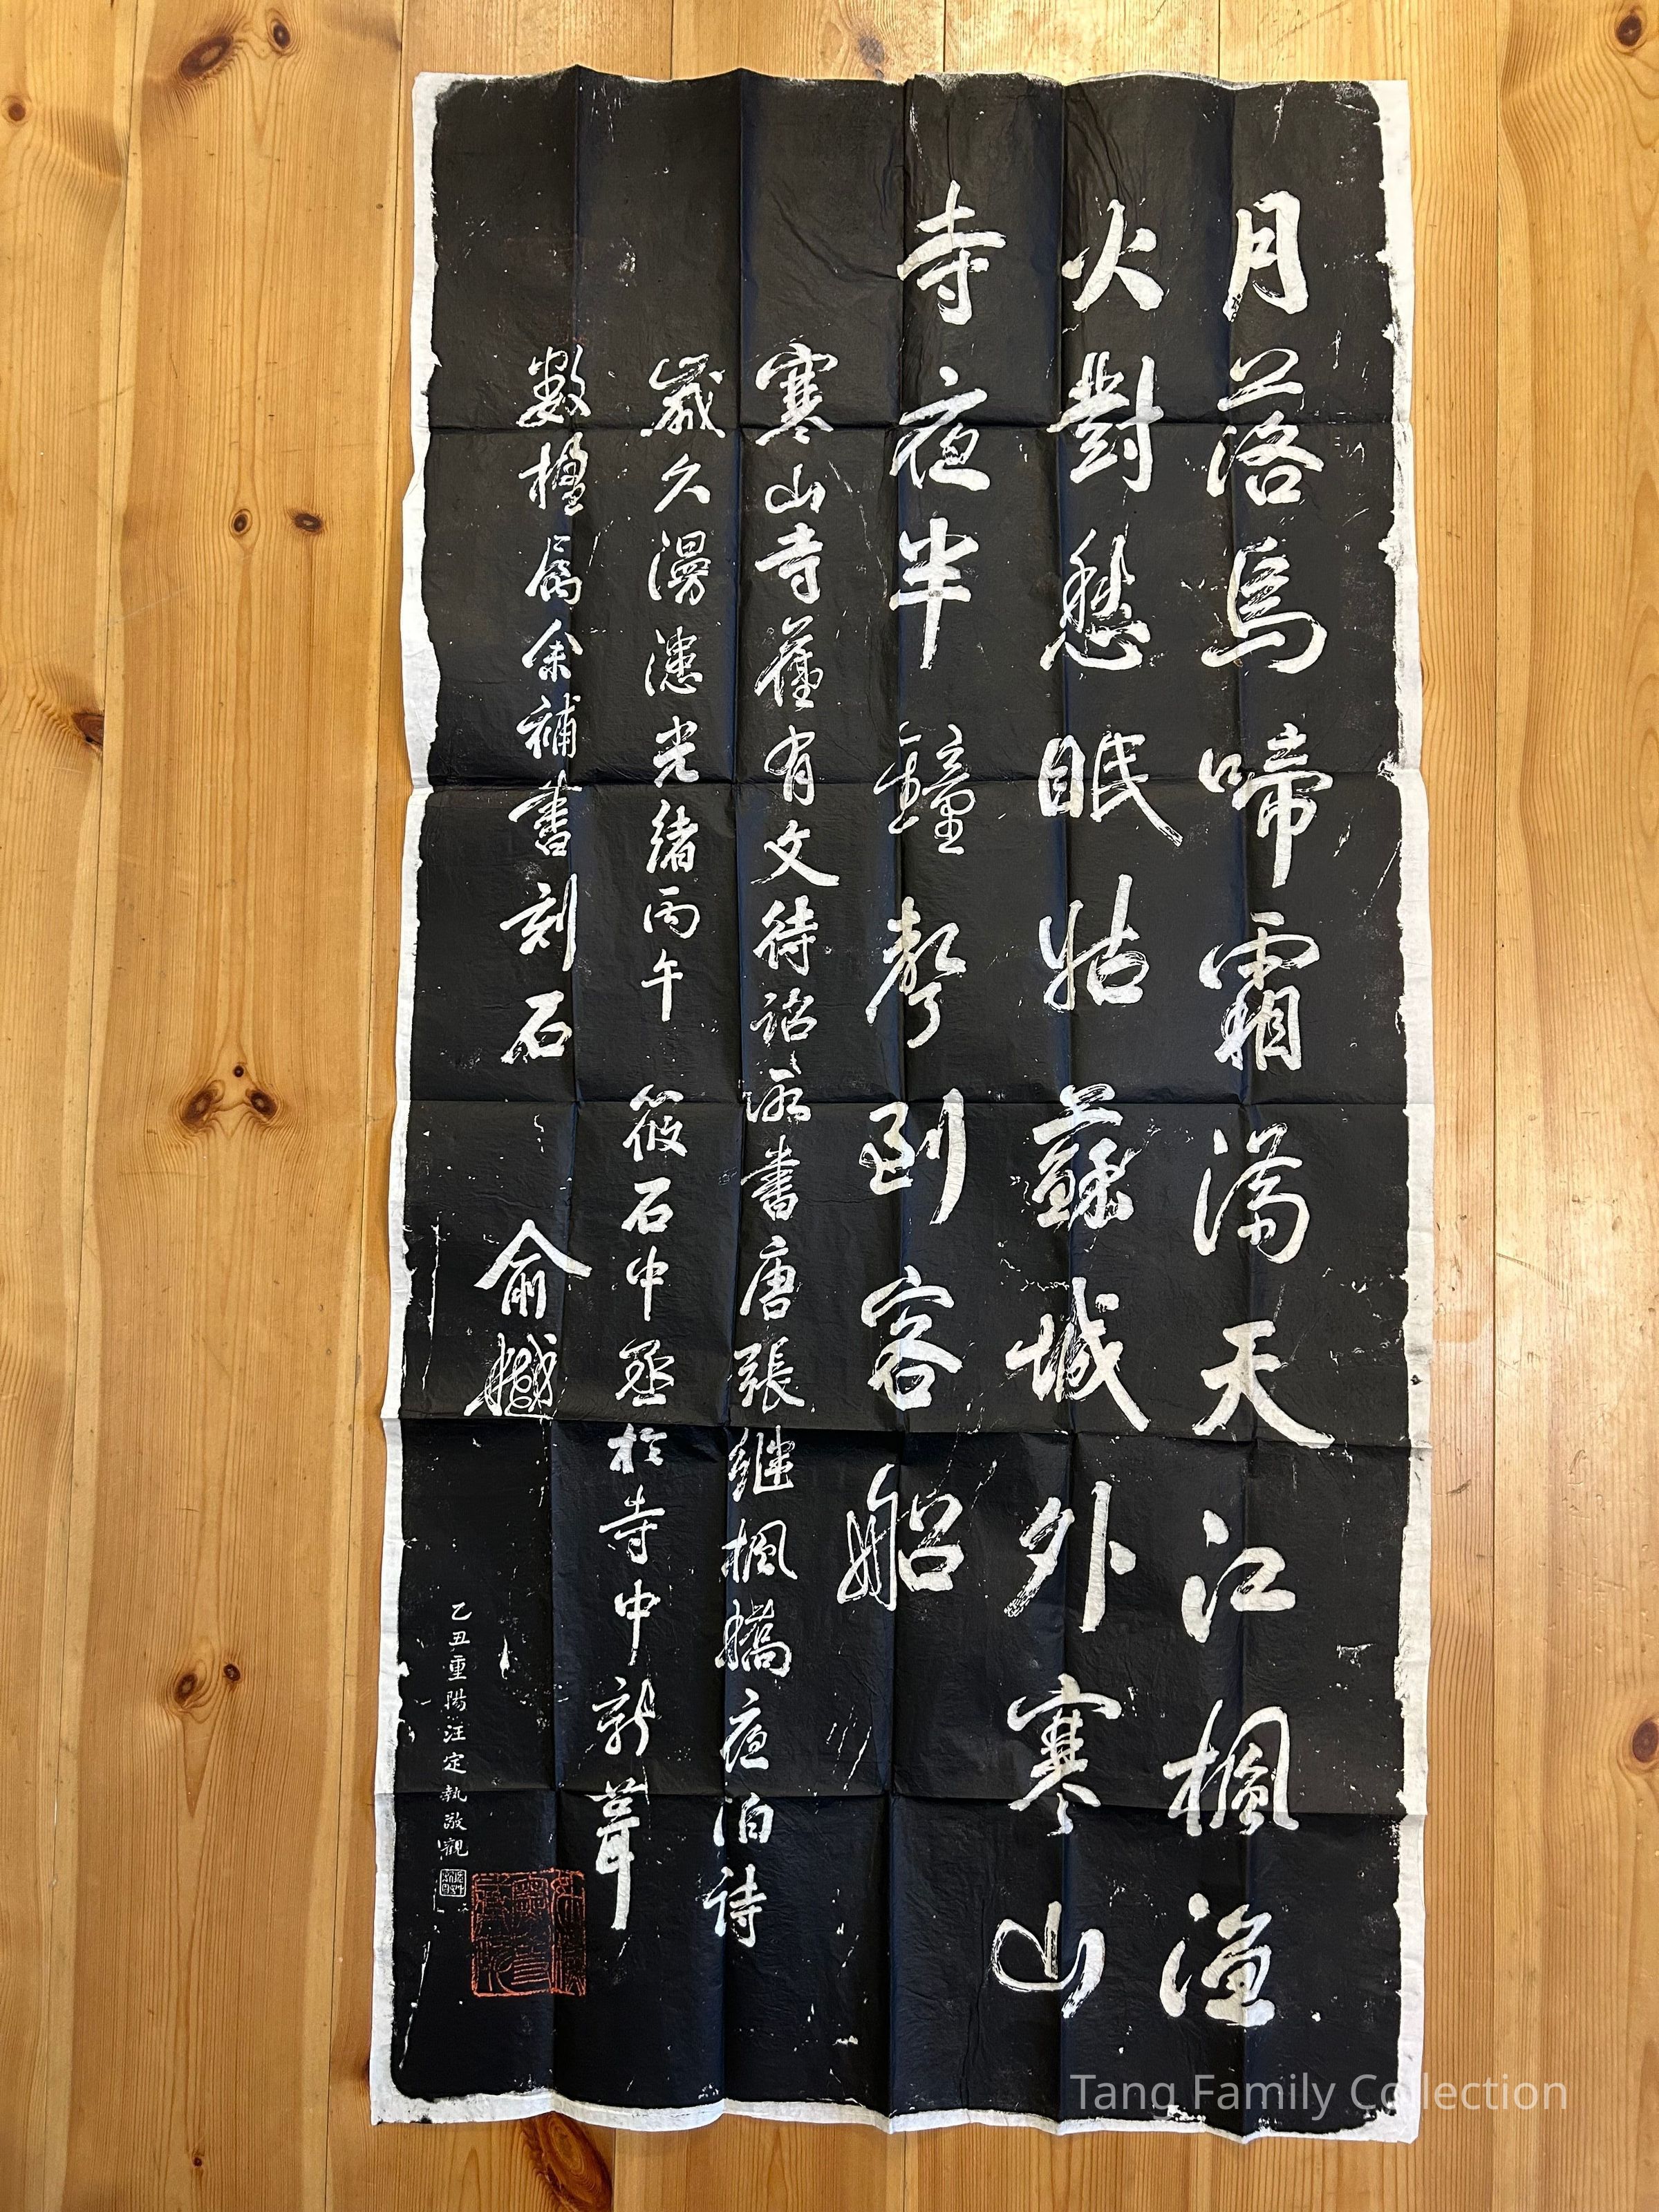 月落烏啼霜滿天江楓漁
火對愁眠姑蘇城外寒山
寺夜半鐘聲到客船
寒山寺舊有文待詔所書唐張繼楓橋夜泊詩
歲久漫漶光緒丙午筱石中丞於寺中新葺
數楹属余補書刻石
俞樾
乙丑重陽汪定執敬觀
Tang Family Collection